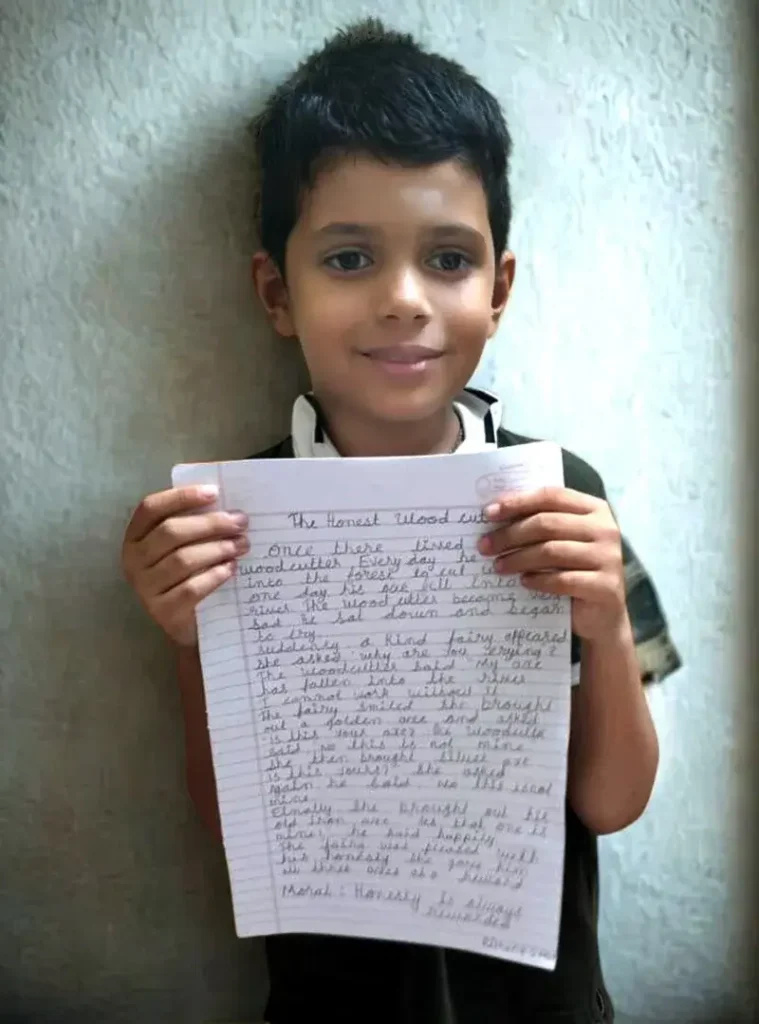 The Honest Wood cut
Once there lived
woodcutter Every day he
into the forest to cut
one day his axe fell into
river The wood cutter became very
sad he sat down and began
to cry
suddenly a kind fairy appeared
she asked why are you crying?
The woodcutter said My axe
has fallen into the river
I cannot work without it
The fairy smiled she brought
out a golden axe and asked
is this your axe? he woodcutte
said no this is not mine
she then brought silver axe
is this yours? she asked
again he said no this is not
mine
Finally she brought out his
old iron axe yes that one is
mine! he said happily
The fairy was pleased with
his honesty she gave him
all three axes as a reward
Moral: Honesty is always
rewarded